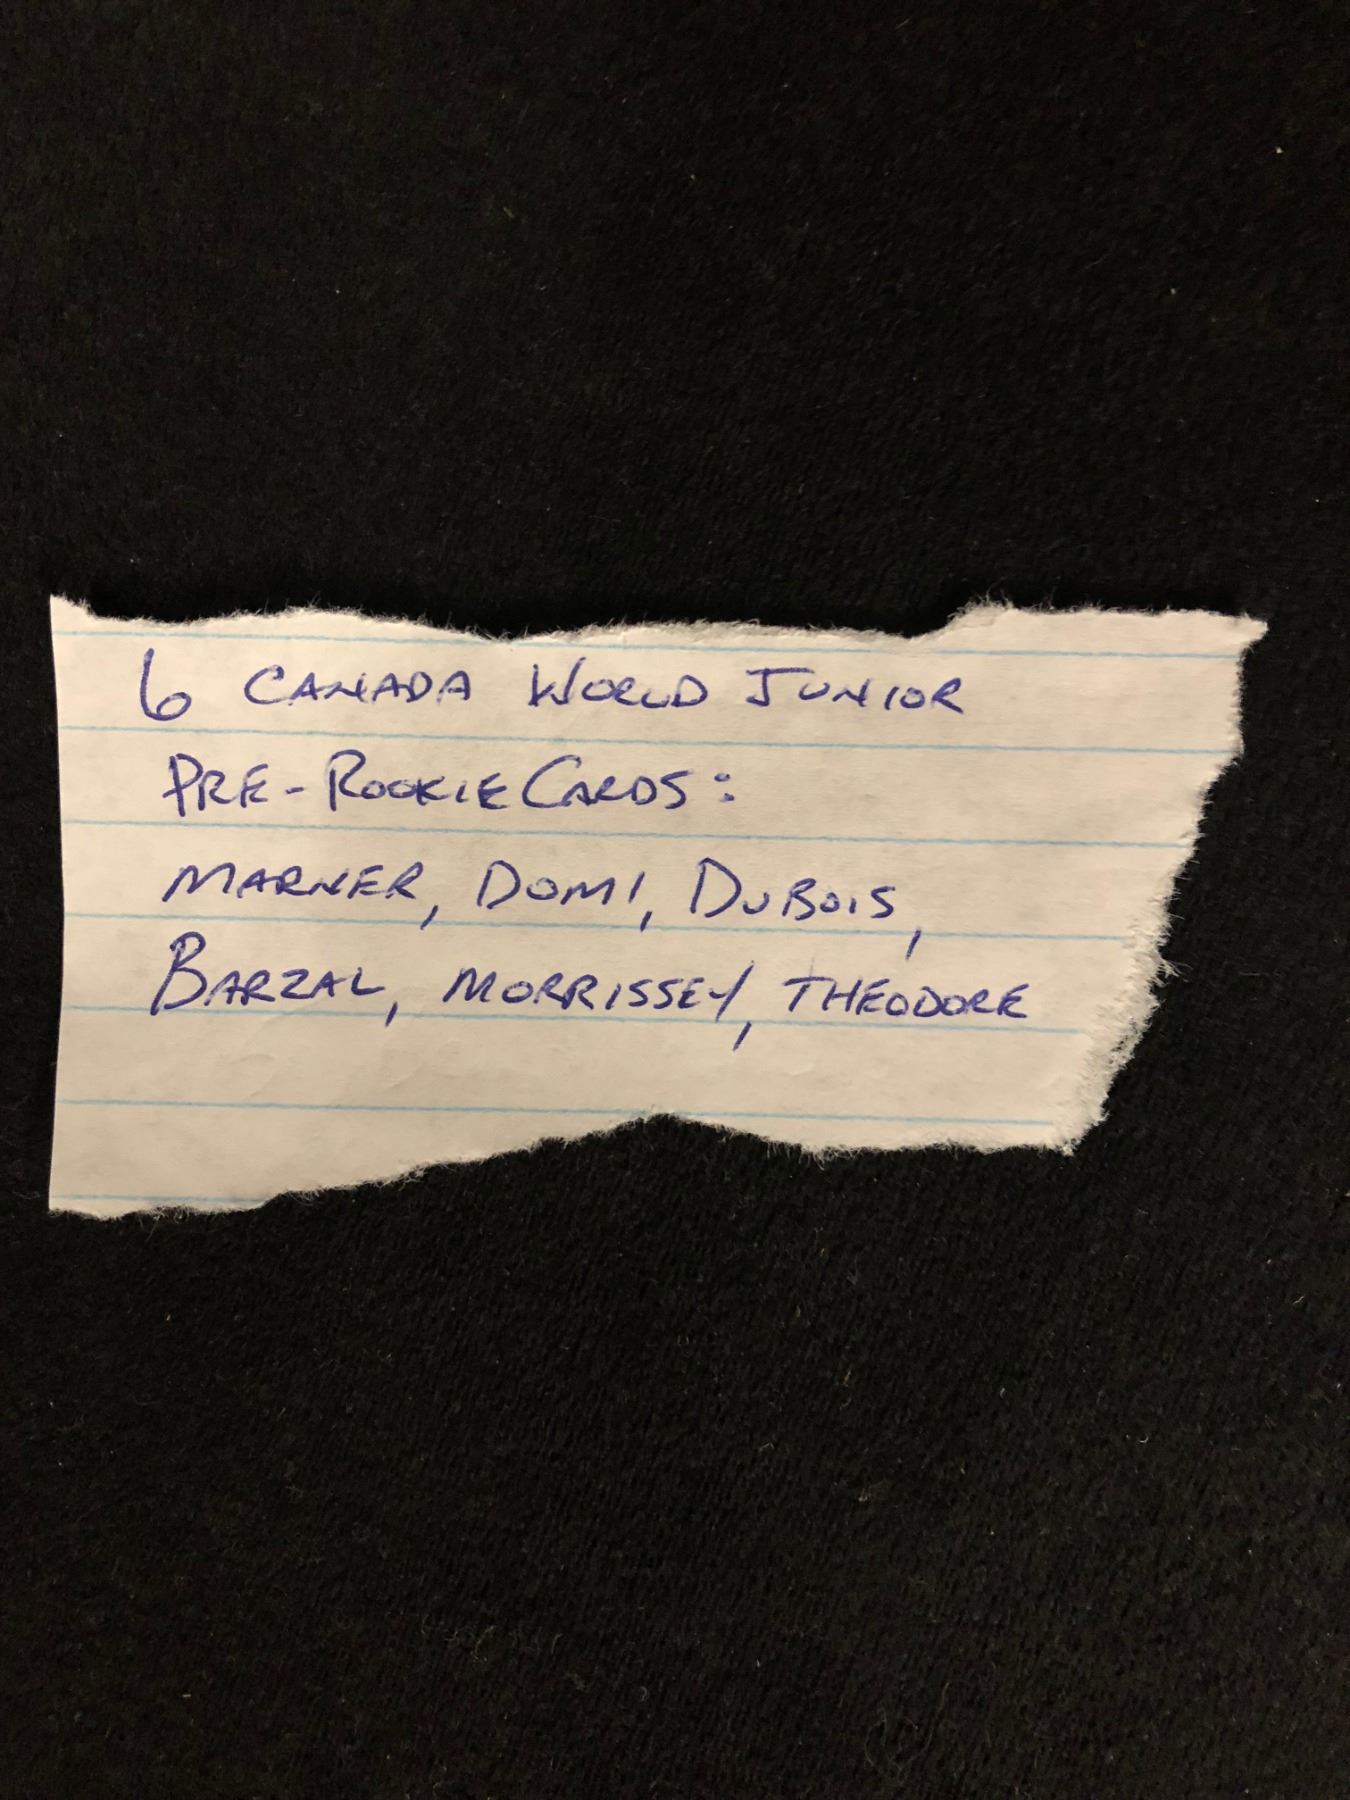 6 CANADA WORLD JUNIOR
PRE-ROOKIE CARDS:
MARNER, DOMI, DUBOIS,
BARZAL, MORRISSEY, THEODORE